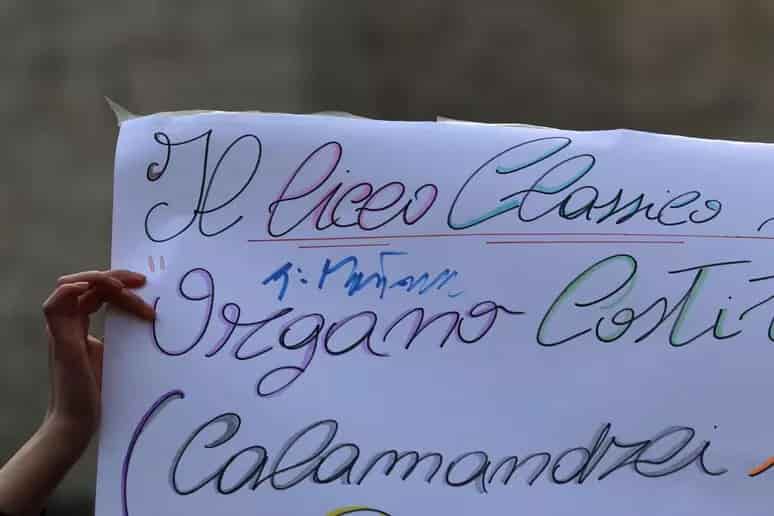 Il liceo Classico
"Organo Costi
(Calamandrei